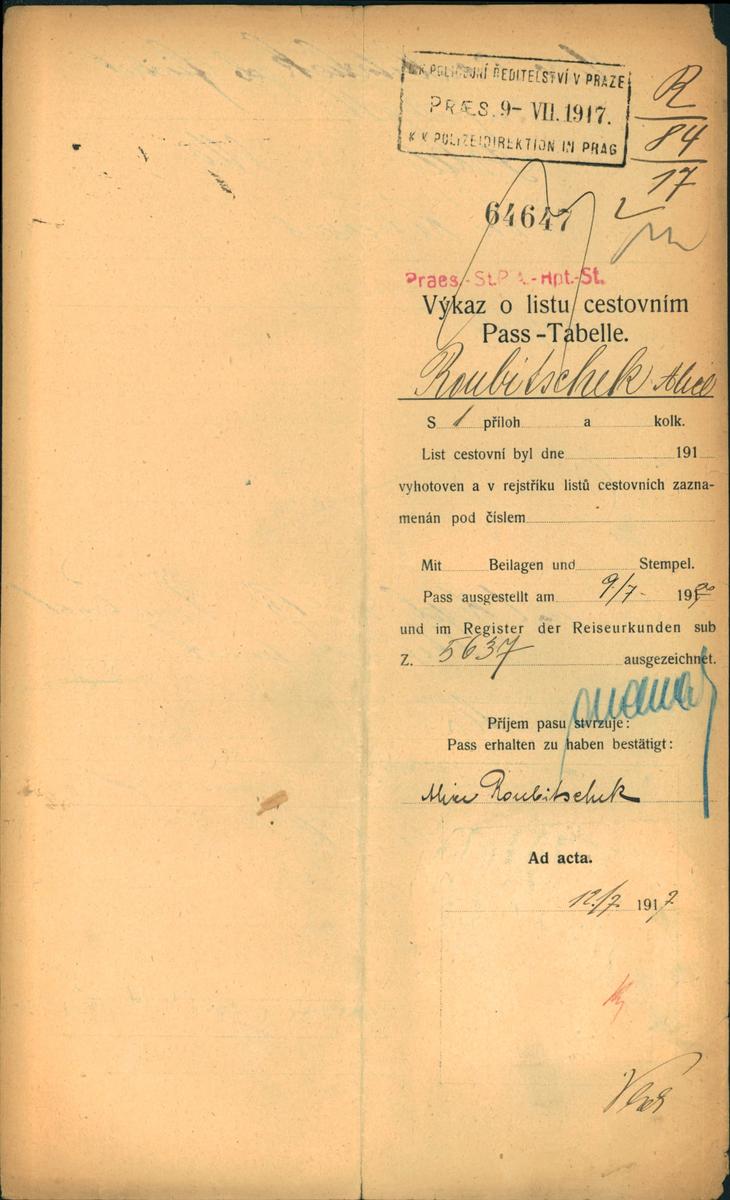 K.K. POLICEJNÍ ŘEDITELSTVÍ V PRAZE
PRÆS. 9- VII. 1917.
K.K. POLIZEIDIREKTION IN PRAG
R
84
17
64647
Praes.-St.P.A.-Hpt.-St.
Výkaz o listu cestovním
Pass-Tabelle.
Roubitschek Alice
S 1 příloh a kolk.
List cestovní byl dne 191
vyhotoven a v rejstříku listů cestovních zazna-
menán pod číslem
Mit Beilagen und Stempel.
Pass ausgestellt am 9/7- 1917
und im Register der Reiseurkunden sub
Z. 5637 ausgezeichnet.
Příjem pasu stvrzuje:
Pass erhalten zu haben bestätigt:
Alice Roubitschek
Ad acta.
12./7. 1917